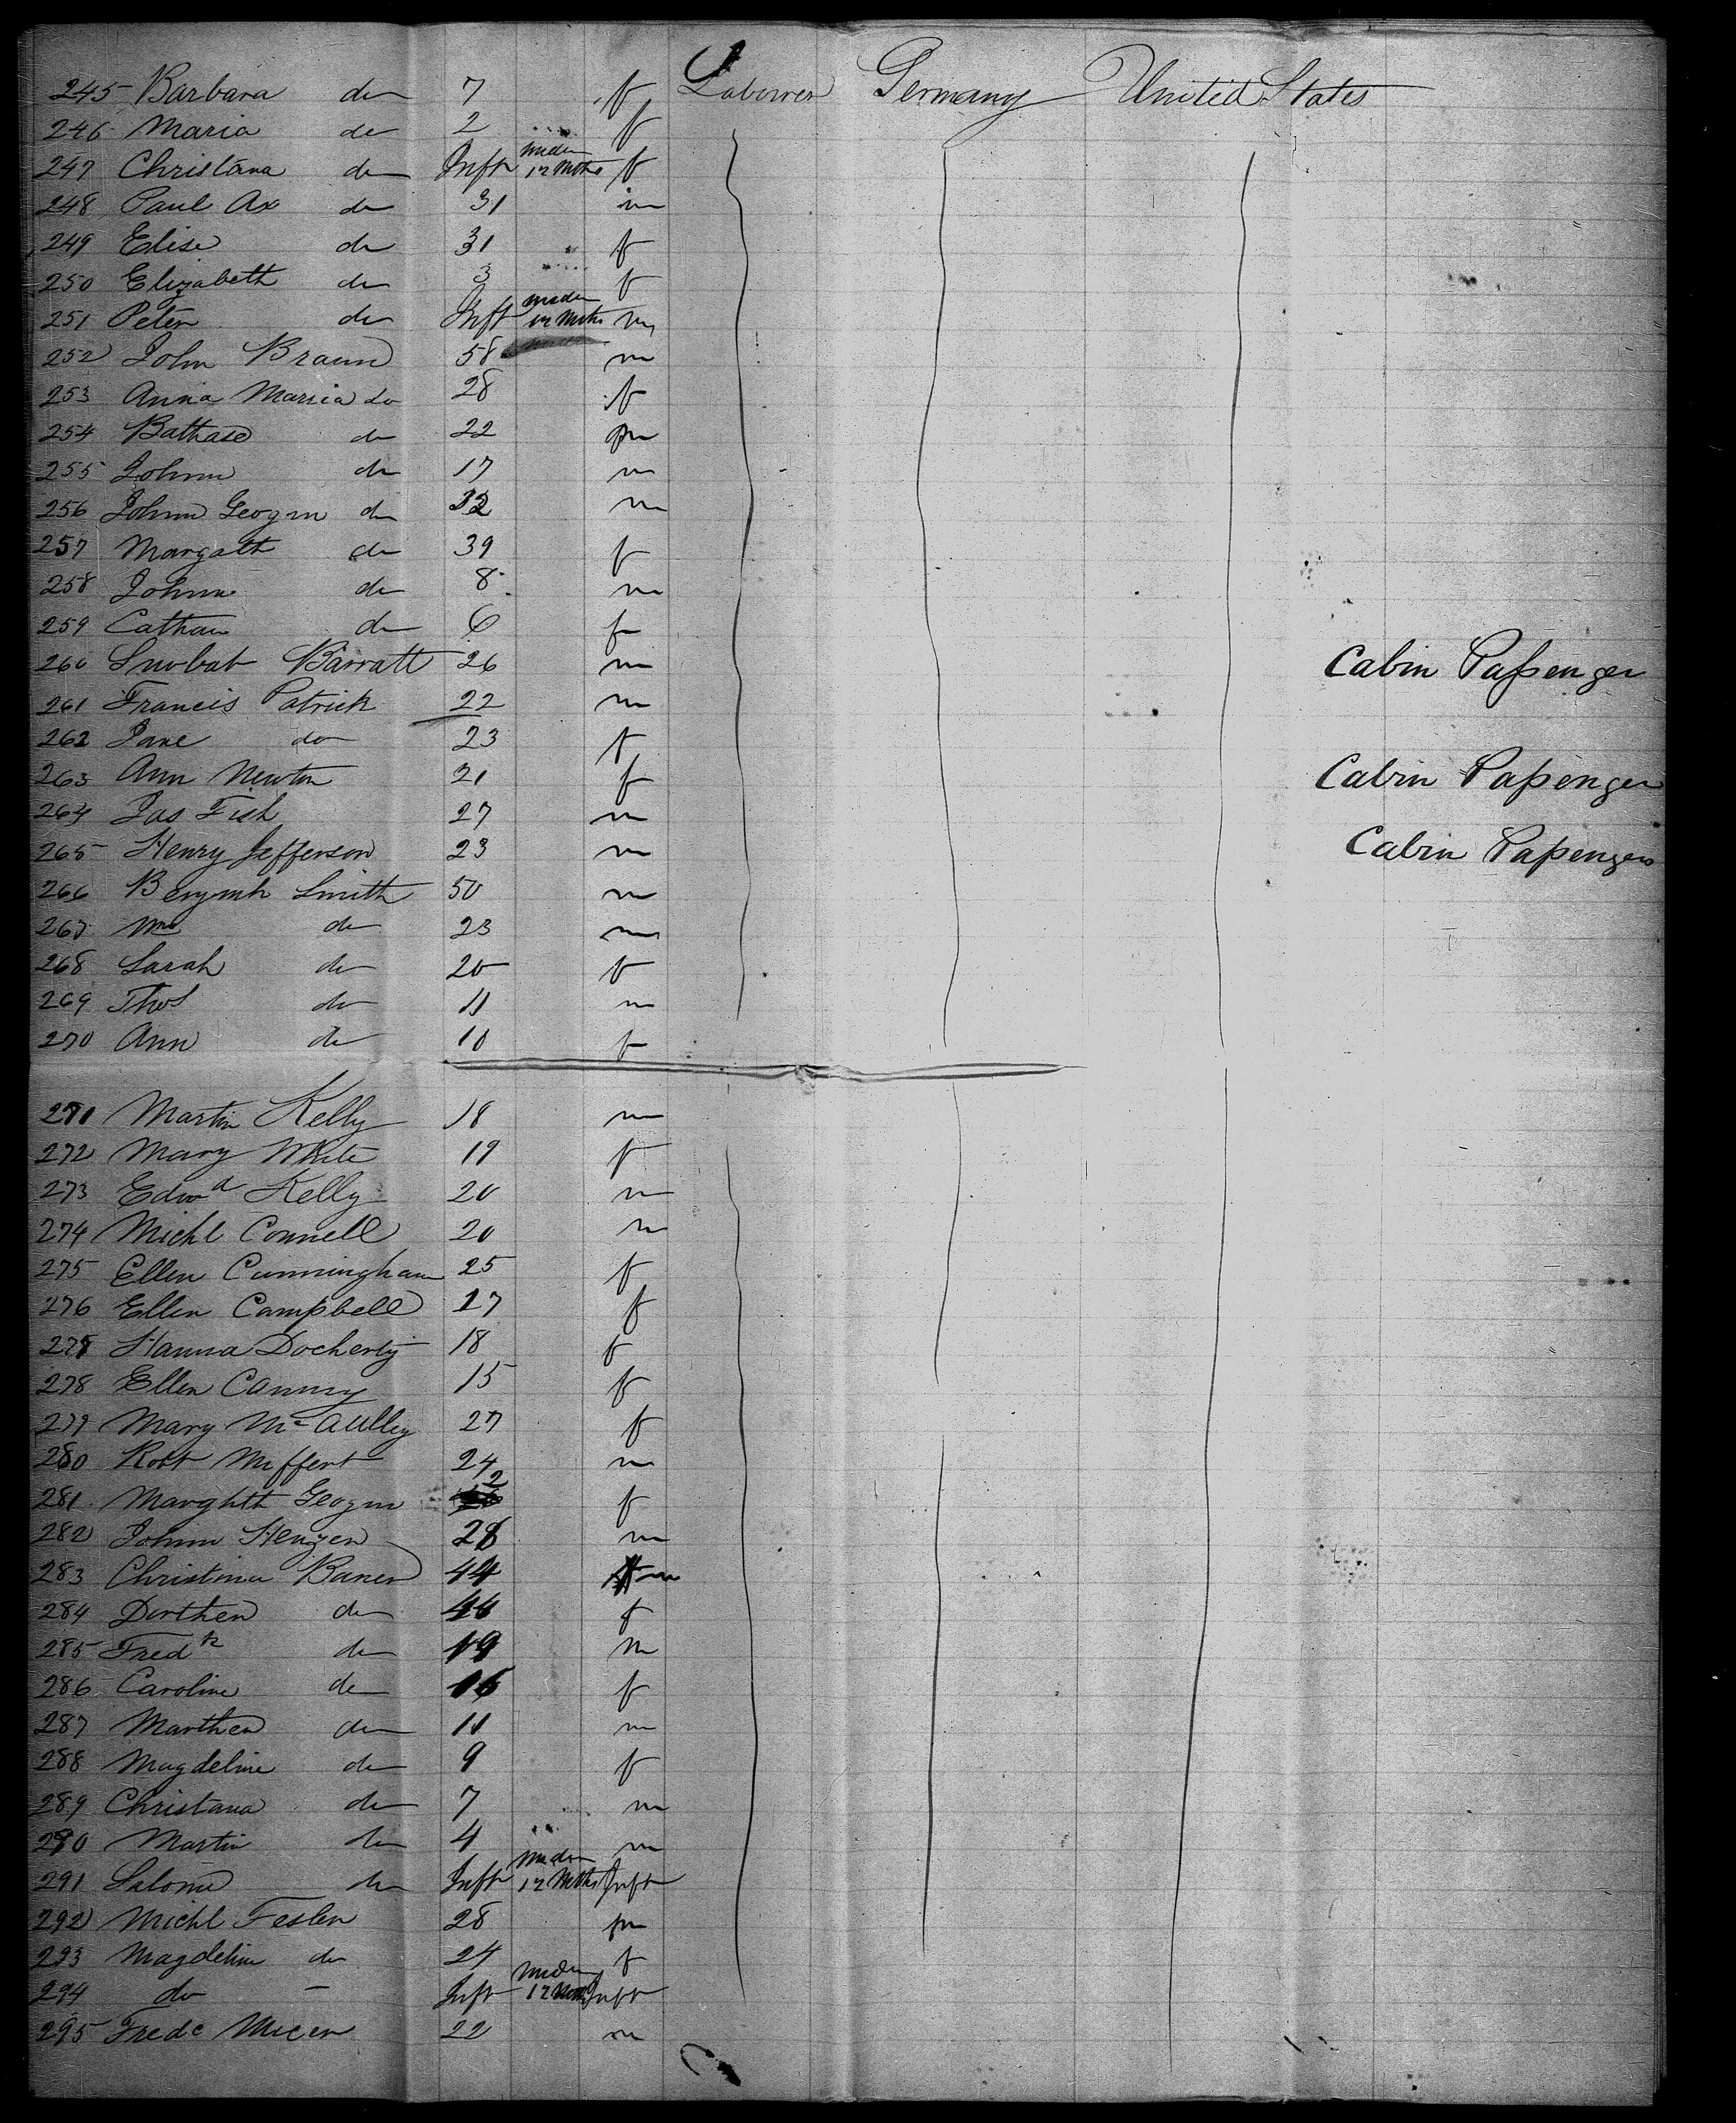 245 Barbara do 7 f Labourer Germany United States
246 Maria do 2 f
247 Christana do Inft under 12 Mths f
248 Paul Ax do 31 m
249 Elise do 31 f
250 Elizabeth do 3 f
251 Peter do Inft under 12 Mths m
252 John Braun 58 m
253 Anna Marria do 28 f
254 Bathase do 22 m
255 Johnn do 17 m
256 Johnn Geogm do 32 m
257 Margath do 39 f
258 Johnn do 8 m
259 Cathau do 6 f
260 Barratt 26 m Cabin Passenger
261 Francis Patrick 22 m
262 Jane do 23 f
263 Ann Newton 21 f Cabin Passenger
264 Jas Fish 27 m
265 Henry Jefferson 23 m Cabin Passengers
266 Smith 50 m
267 do 23 m
268 Sarah do 20 f
269 Thos do 11 m
270 Ann do 10 f
271 Martin Kelly 18 m
272 Mary White 19 f
273 Edwd Kelly 20 m
274 Michl Connell 20 m
275 Ellen Cunningham 25 f
276 Ellen Campbell 17 f
277 Hanna Docherty 18 f
278 Ellen Canny 15 f
279 Mary McAulley 27 f
280 Robt Meffert 24 m
281 Marghth Geogm 2 f
282 Johnn Henzen 28 m
283 Christina Baner 44 m
284 Dorthea do 46 f
285 Fredk do 19 m
286 Caroline do 16 f
287 Marthea do 11 m
288 Magdeline do 9 f
289 Christana do 7 m
290 Martin do 4 m
291 Salome do Inft under 12 Mths Inft
292 Michl Feslen 28 m
293 Magdeline do 24 f
294 do — Inft under 12 Mths Inft
295 Fredc Meeen 22 m